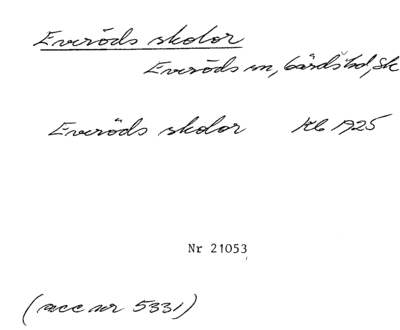 Everöds skolor
Everöds sn, Gärds hd, Sk
Everöds skolor Kb 1925
Nr 21053
(acc nr 5331)